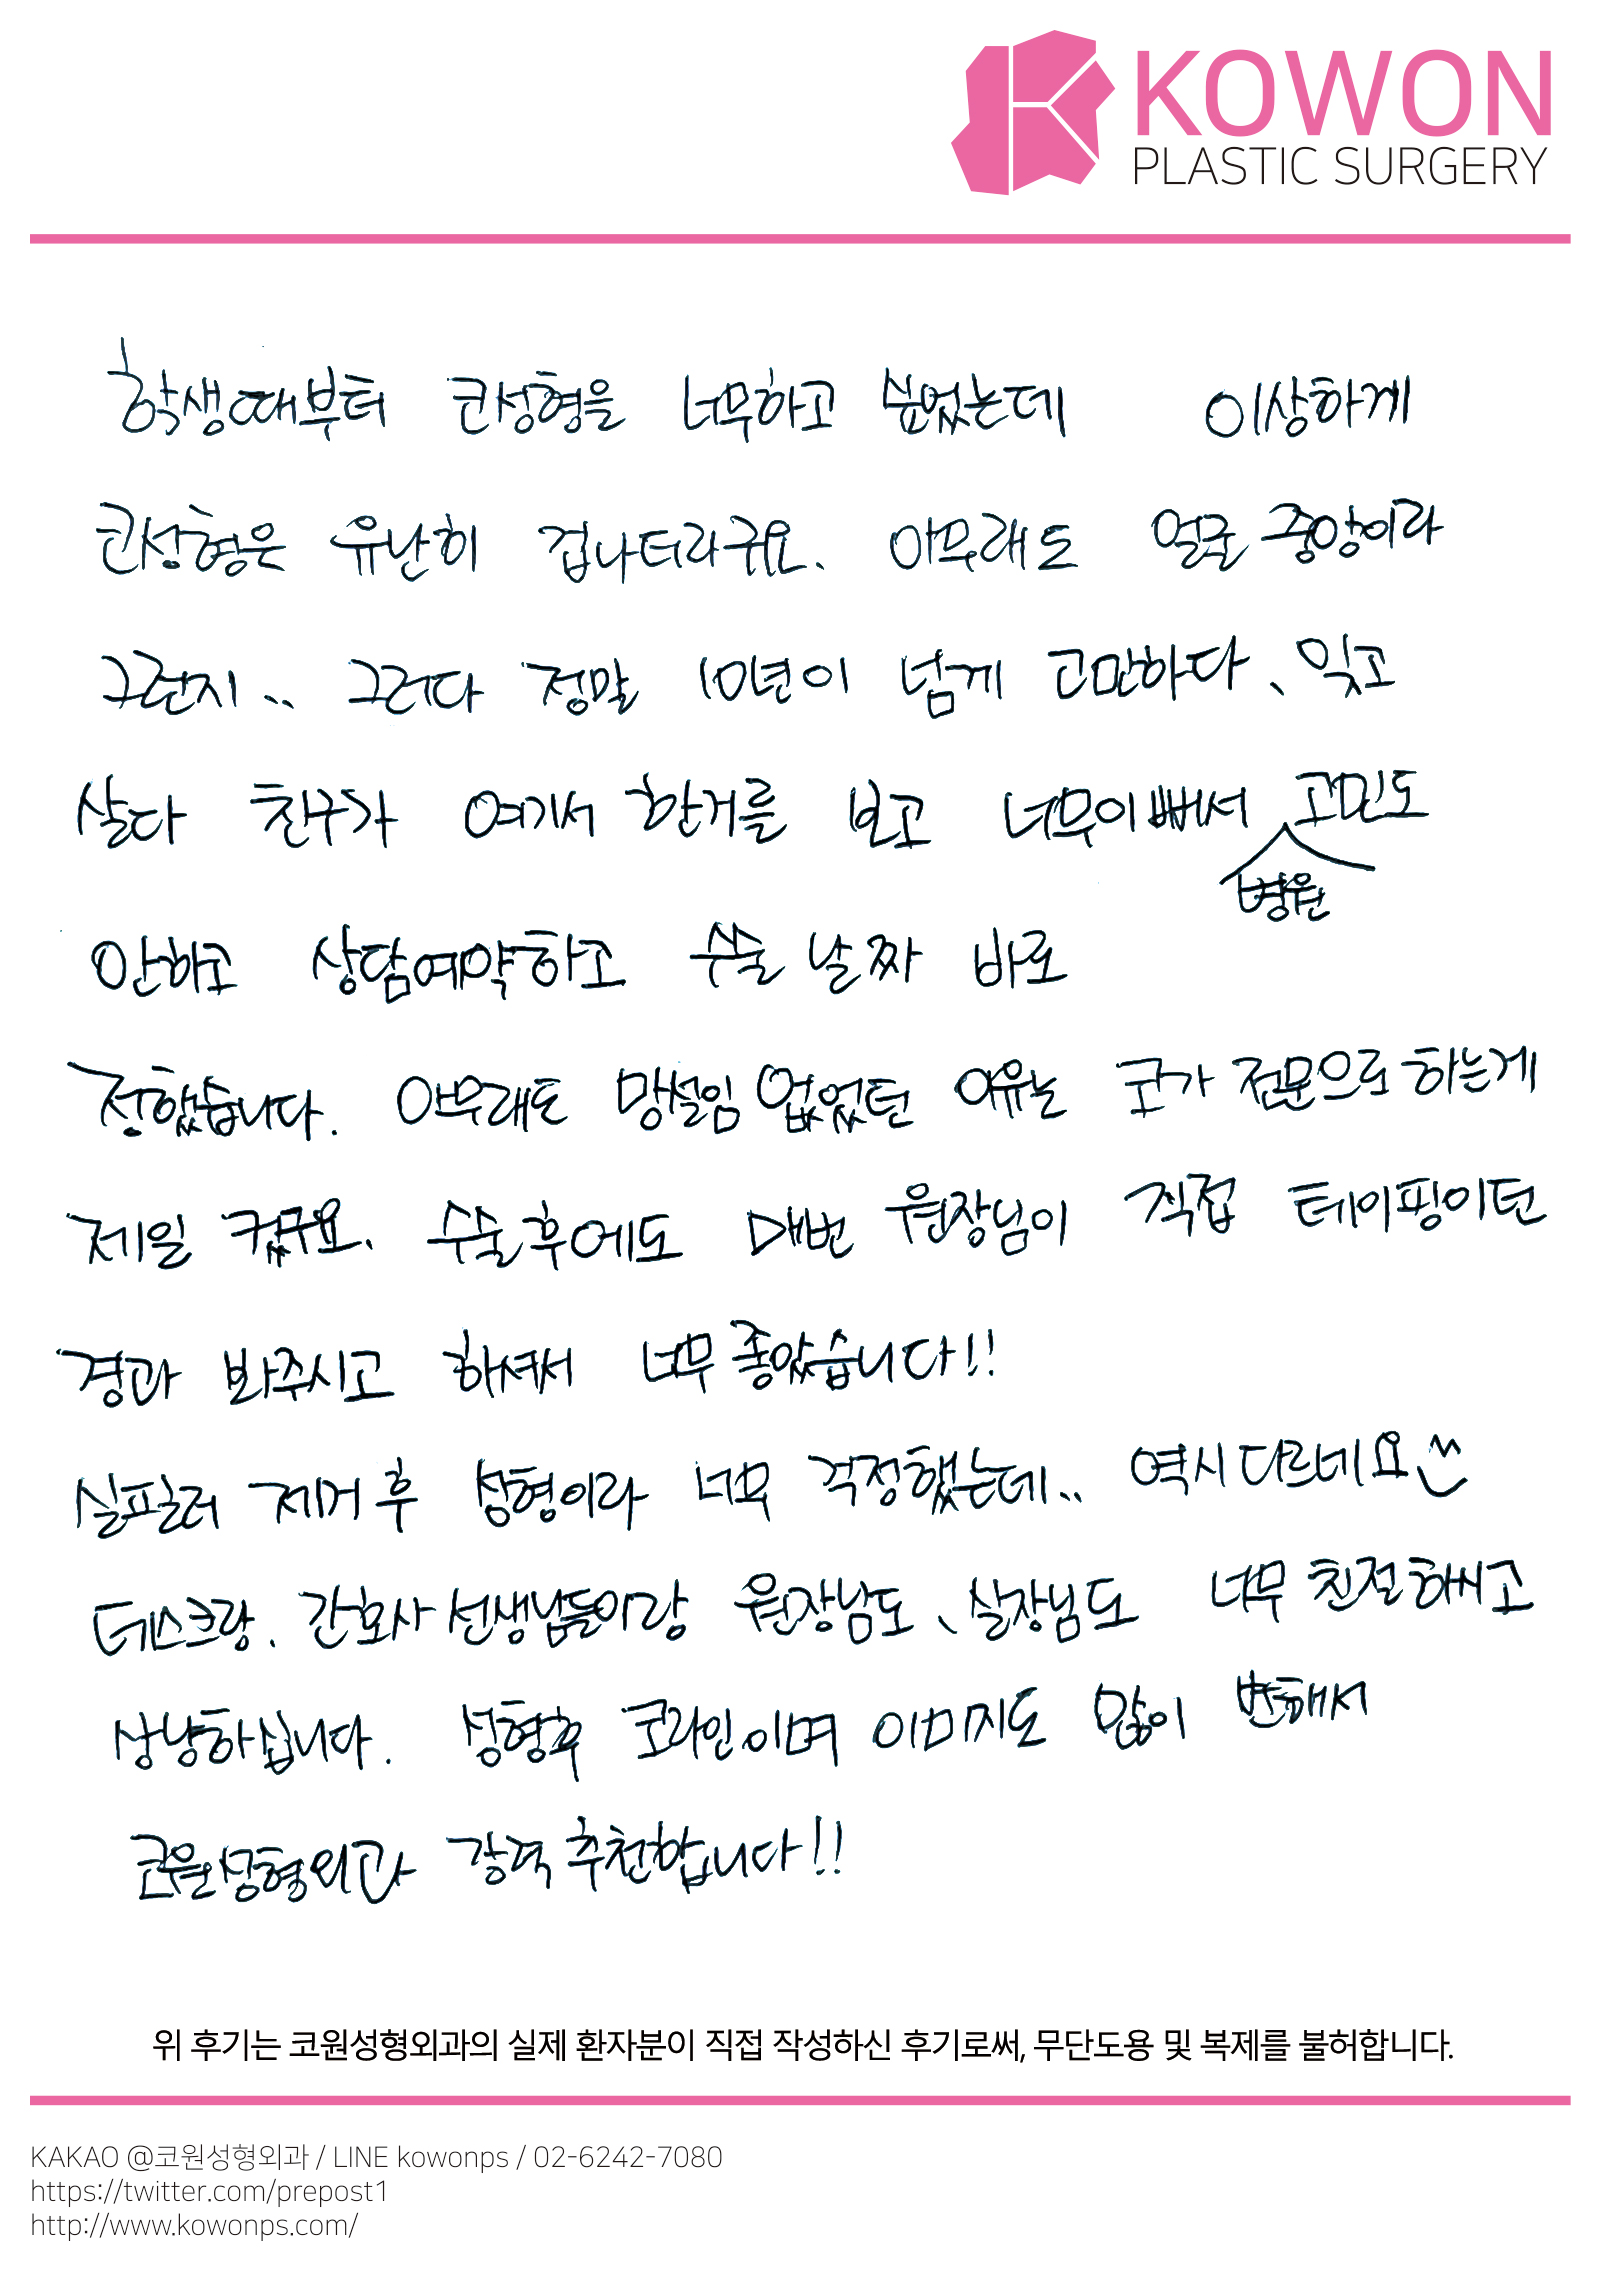 KOWON
PLASTIC SURGERY
학생때부터 코성형을 너무하고 싶었는데 이상하게
코성형은 유난히 겁나더라구요. 아무래도 얼굴 중앙이라
그런지.. 그러다 정말 10년이 넘게 고민하다, 잊고
살다 친구가 여기서 한거를 보고 너무이뻐서 병원 고민도
안하고 상담예약하고 수술 날짜 바로
정했습니다. 아무래도 망설임 없었던 이유는 코가 전문으로 하는게
제일 컸구요. 수술후에도 매번 원장님이 직접 테이핑이던
경과 봐주시고 하셔서 너무 좋았습니다!!
실필러 제거 후 성형이라 너무 걱정했는데.. 역시 다르네요
데스크랑. 간호사 선생님들이랑 원장님도, 실장님도 너무 친절하시고
상냥하십니다. 성형후 코라인이며 이미지도 많이 변해서
코원성형외과 강력 추천합니다!!
위 후기는 코원성형외과의 실제 환자분이 직접 작성하신 후기로써, 무단도용 및 복제를 불허합니다.
KAKAO @코원성형외과 / LINE kowonps / 02-6242-7080
https://twitter.com/prepost1
http://www.kowonps.com/